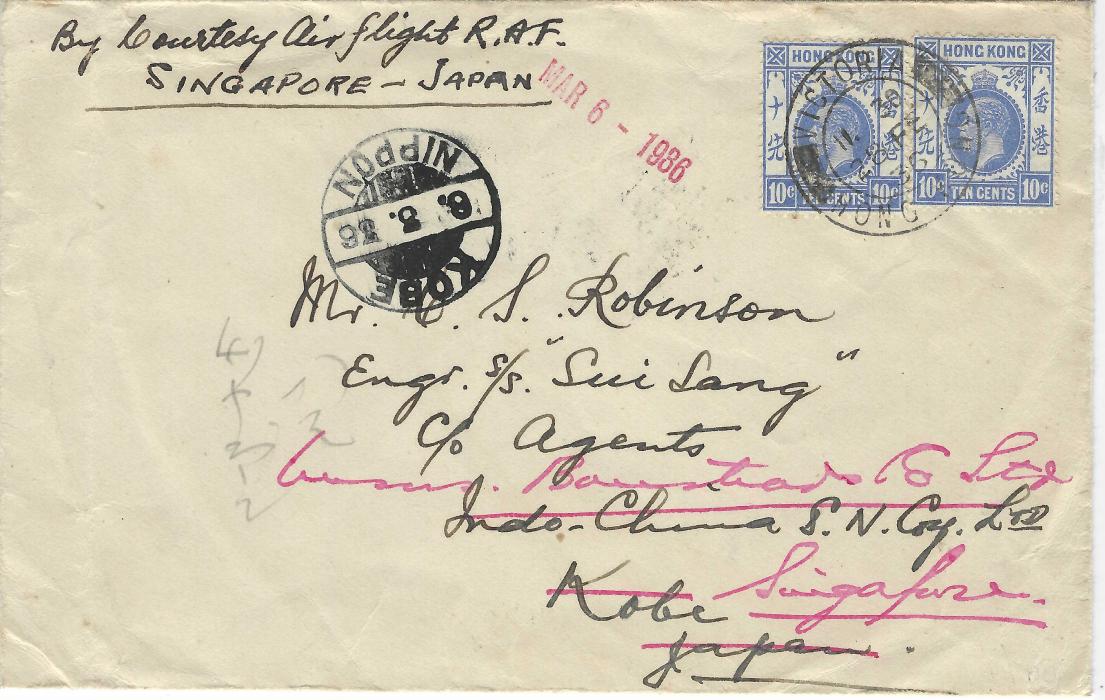 By Courtesy Air flight R.A.F.
SINGAPORE - JAPAN
MAR 6 - 1936
HONG KONG
香港
十先
10c TEN CENTS 10c
HONG KONG
香港
十先
10c TEN CENTS 10c
VICTORIA
HONG
KOBE
6. 3. 36
NIPPON
Mr. S. Robinson
Engr. s/s. "Sui Sang"
c/o Agents
Messrs. Boustead & Co Ltd
Indo-China S. N. Coy. Ltd
Kobe Singapore.
Japan.